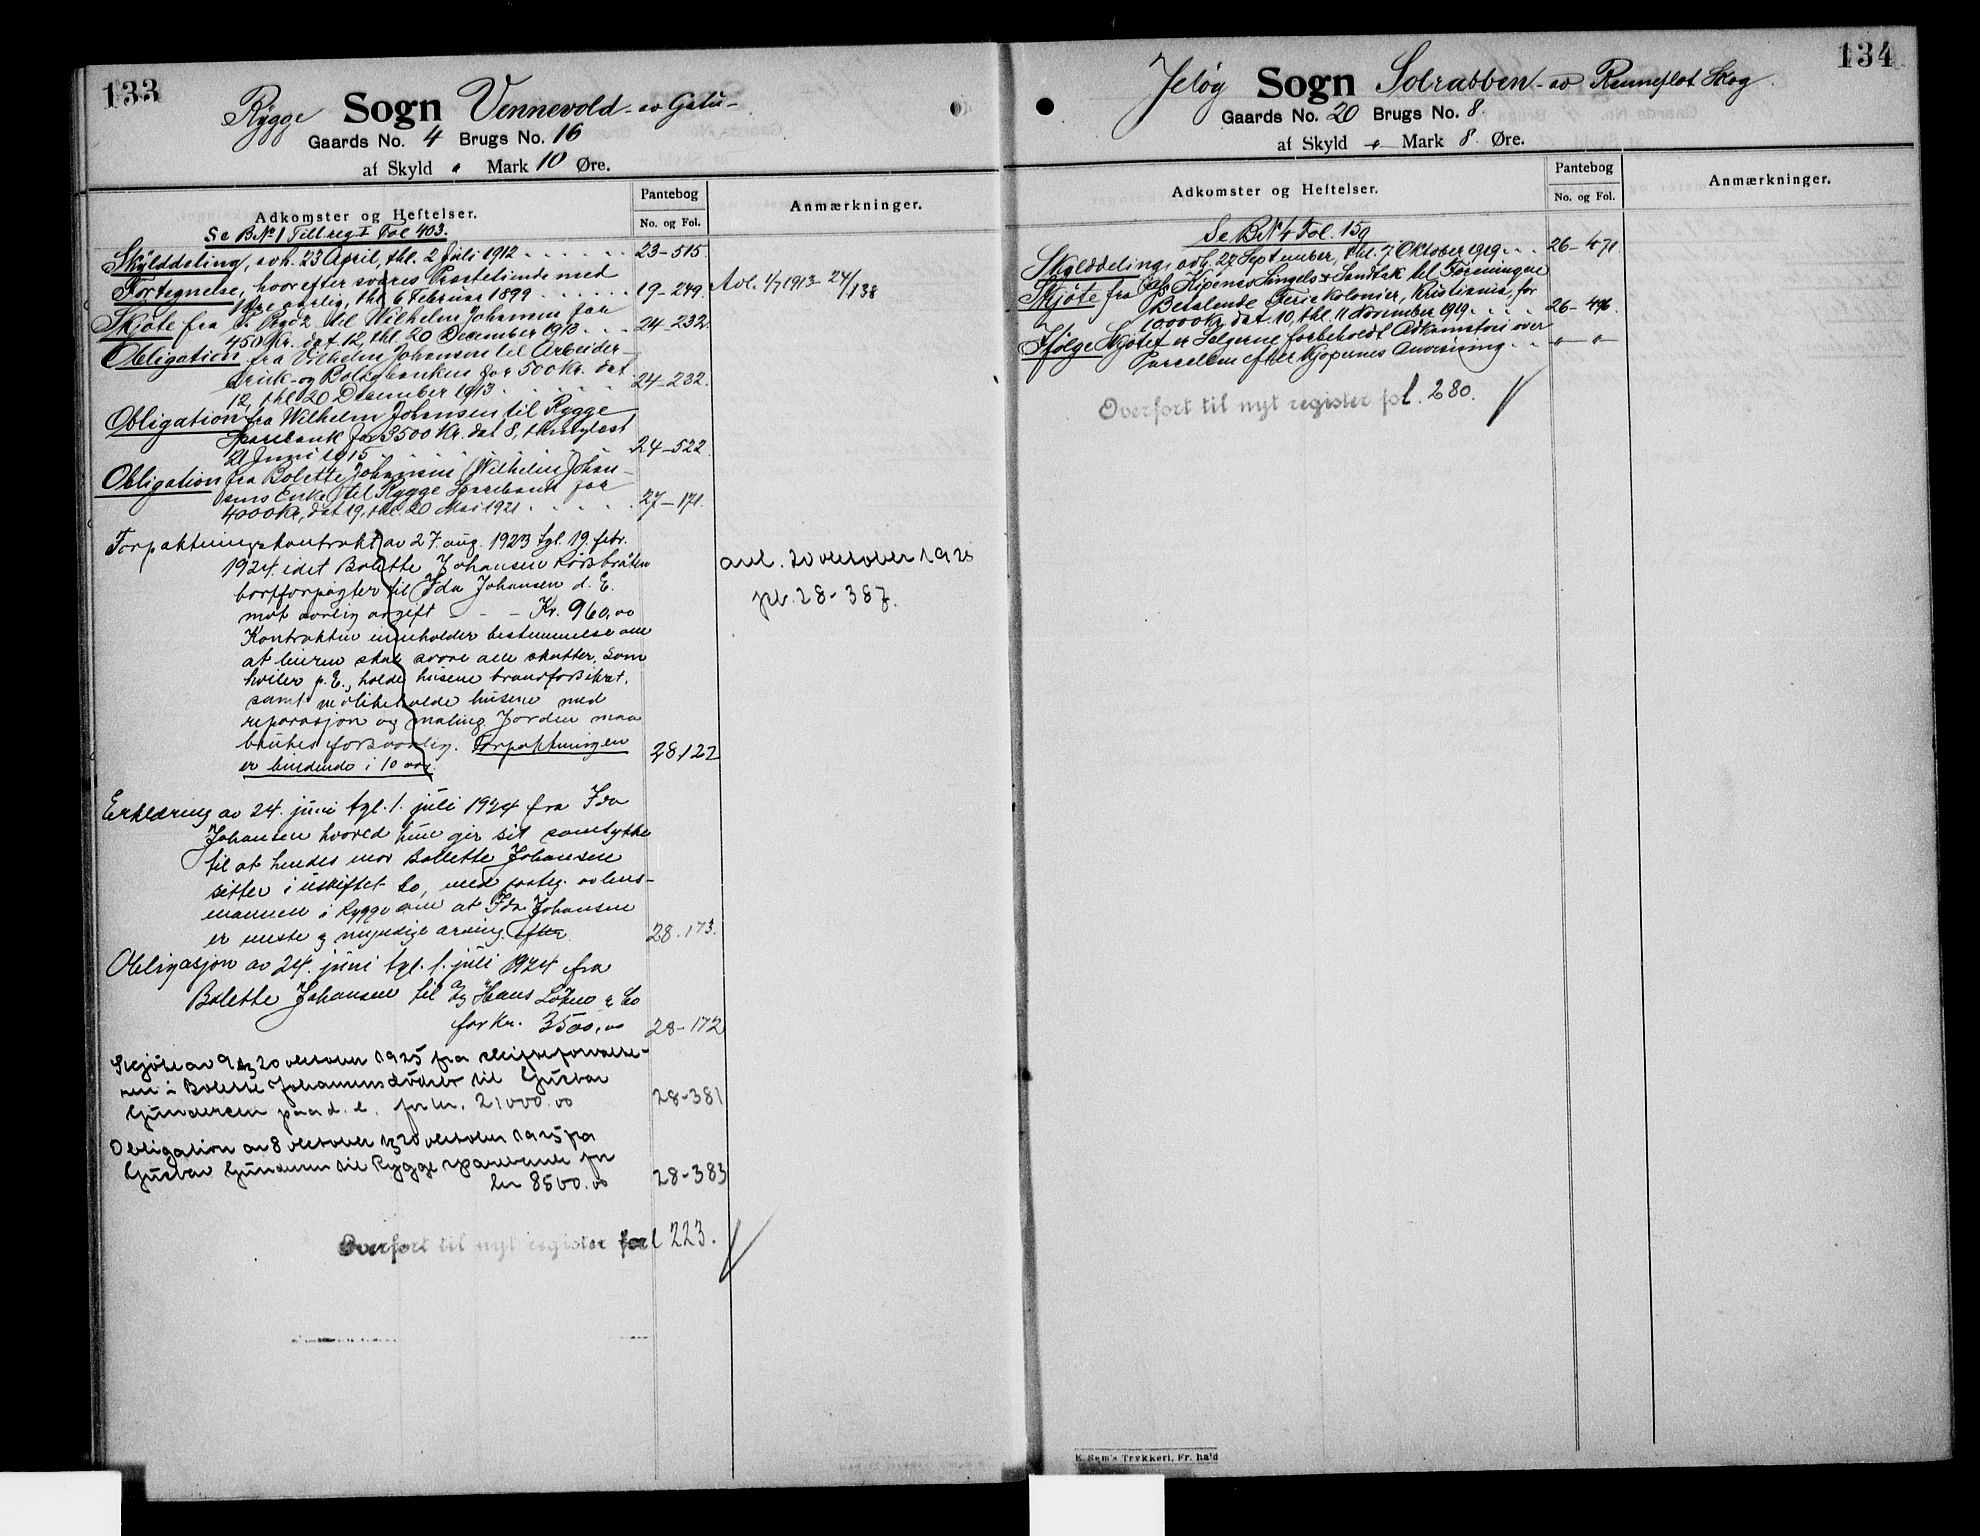 133
Rygge Sogn Vennevold - av Galu-
Gaards No. 4 Brugs No. 16
af Skyld " Mark 10 Øre.
Adkomster og Heftelser.
Pantebog
No. og Fol.
Anmærkninger.
Se B No 1 Till.reg I Fol 403.
Skylddeling, avh. 23 April, thl. 2 Juli 1912 . . . . . . 23-515.
Fortegnelse, hvorefter svares Præstetiende med
1 Øre aarlig, thl 6 Februar 1899 . . . . . . 19-249. Avl. 1/7 1913 24/138
Skjøte fra til Wilhelm Johansen for
450 Kr. dat. 12, thl. 20 December 1913 . . . 24-232.
Obligation fra Vilhelm Johansen til Arbeider-
bruk- og Boligbanken for 500 Kr. dat
12, thl 20 December 1913 . . . . . . 24-232.
Obligation fra Wilhelm Johansen til Rygge
Sparebank for 3500 Kr. dat 8, thinglæst
21 Juni 1915 . . . . . . 24-522.
Obligation fra Bolette Johansen (Wilhelm Johan-
sens Enke) til Rygge Sparebank for
4000 Kr, dat 19, thl. 20 Mai 1921 . . . . . 27-171.
Forpaktningskontrakt av 27. aug. 1923 tgl. 19. febr.
1924. idet Bolette Johansen Rørsbråten
bortforpagter til Ida Johansen d. E.
mot aarlig avgift - - - Kr. 960,00
Kontrakten inneholder bestemmelse om
at leieren skal svare alle skatter, som
hviler p. E., holde husene brandforsikret,
samt vedlikeholde husene med
reparasjon og maling. Jorden maa
brukes forsvarlig. Forpaktningen
er bindende i 10 aar. 28.122
avl. 20 oktober 1925
pb. 28-387.
Erklæring av 24. juni tgl. 1. juli 1924 fra Ida
Johansen hvorved hun gir sit samtykke
til at hendes mor Bollette Johansen
sitter i uskiftet bo, med paateg. av lens-
mannen i Rygge om at Ida Johansen
er eneste og myndige arving. efter 28.173.
Obligasjon av 24. juni tgl. 1. juli 1924 fra
Bolette Johansen til Hans & Co
for Kr. 3500,00 28-172
Skjøte av 9 tgl 20 oktober 1925 fra skifteforvalte-
ren i Bolette Johansens dødsbo til Gustav
Gundersen paa d. e. for kr. 21000.00 28-381
Obligation av 8 oktober tgl 20 oktober 1925 fra
Gustav Gundersen til Rygge sparebank for
kr 8500.00 28-383
Overført til nyt register fol 223.
134
Jeløy Sogn Solrabben - av Renneflot Skog.
Gaards No. 20 Brugs No. 8.
af Skyld " Mark 8 Øre.
Adkomster og Heftelser.
Pantebog
No. og Fol.
Anmærkninger.
Se B No 4 Fol. 159
Skylddeling, avh. 27 September, thl. 7 Oktober 1919 . . . 26-471.
Skjøte fra Kipenes Singels & Sandtak til Foreningen
Betalende Feriekolonier, Kristiania, for
10.000 Kr, dat. 10, thl. 11 November 1919 . . . . 26-496.
Ifølge Skjøtet er Sælgerne forbeholdt Adkomsten over
Parcellen efter Kjøpernes Anvisning . . " — "
Overført til nyt register fol. 280.
E. Sem's Trykkeri, Fr. hald